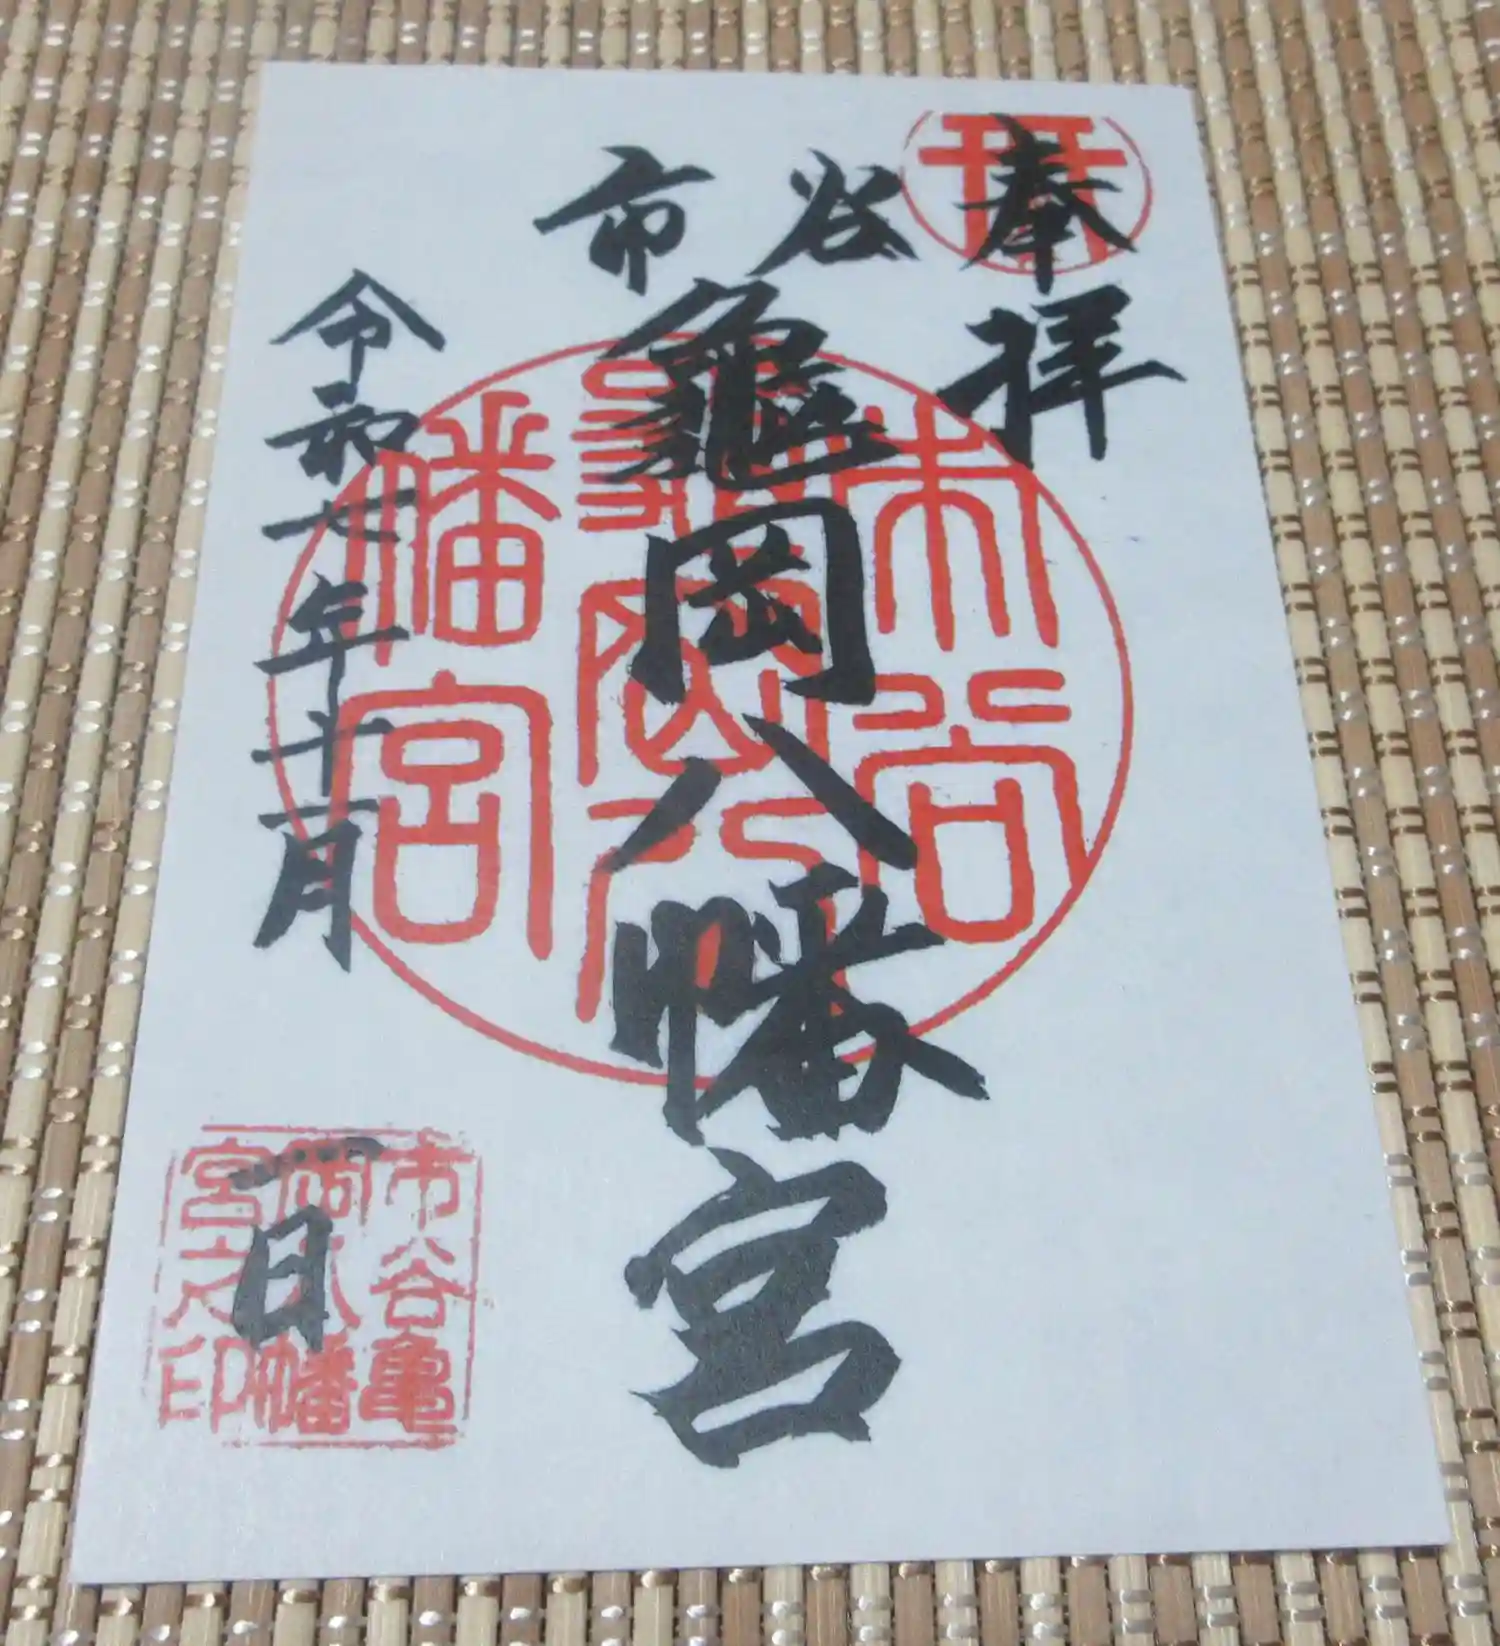 奉拝
市谷
龜岡八幡宮
令和七年十一月一日
市谷
龜岡八
幡宮
市谷亀
岡八幡
宮之印